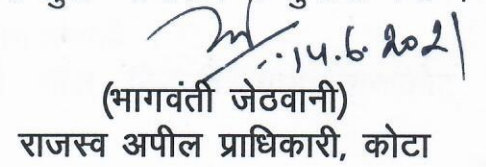 14.6.2021
(भागवंती जेठवानी)
राजस्व अपील प्राधिकारी, कोटा